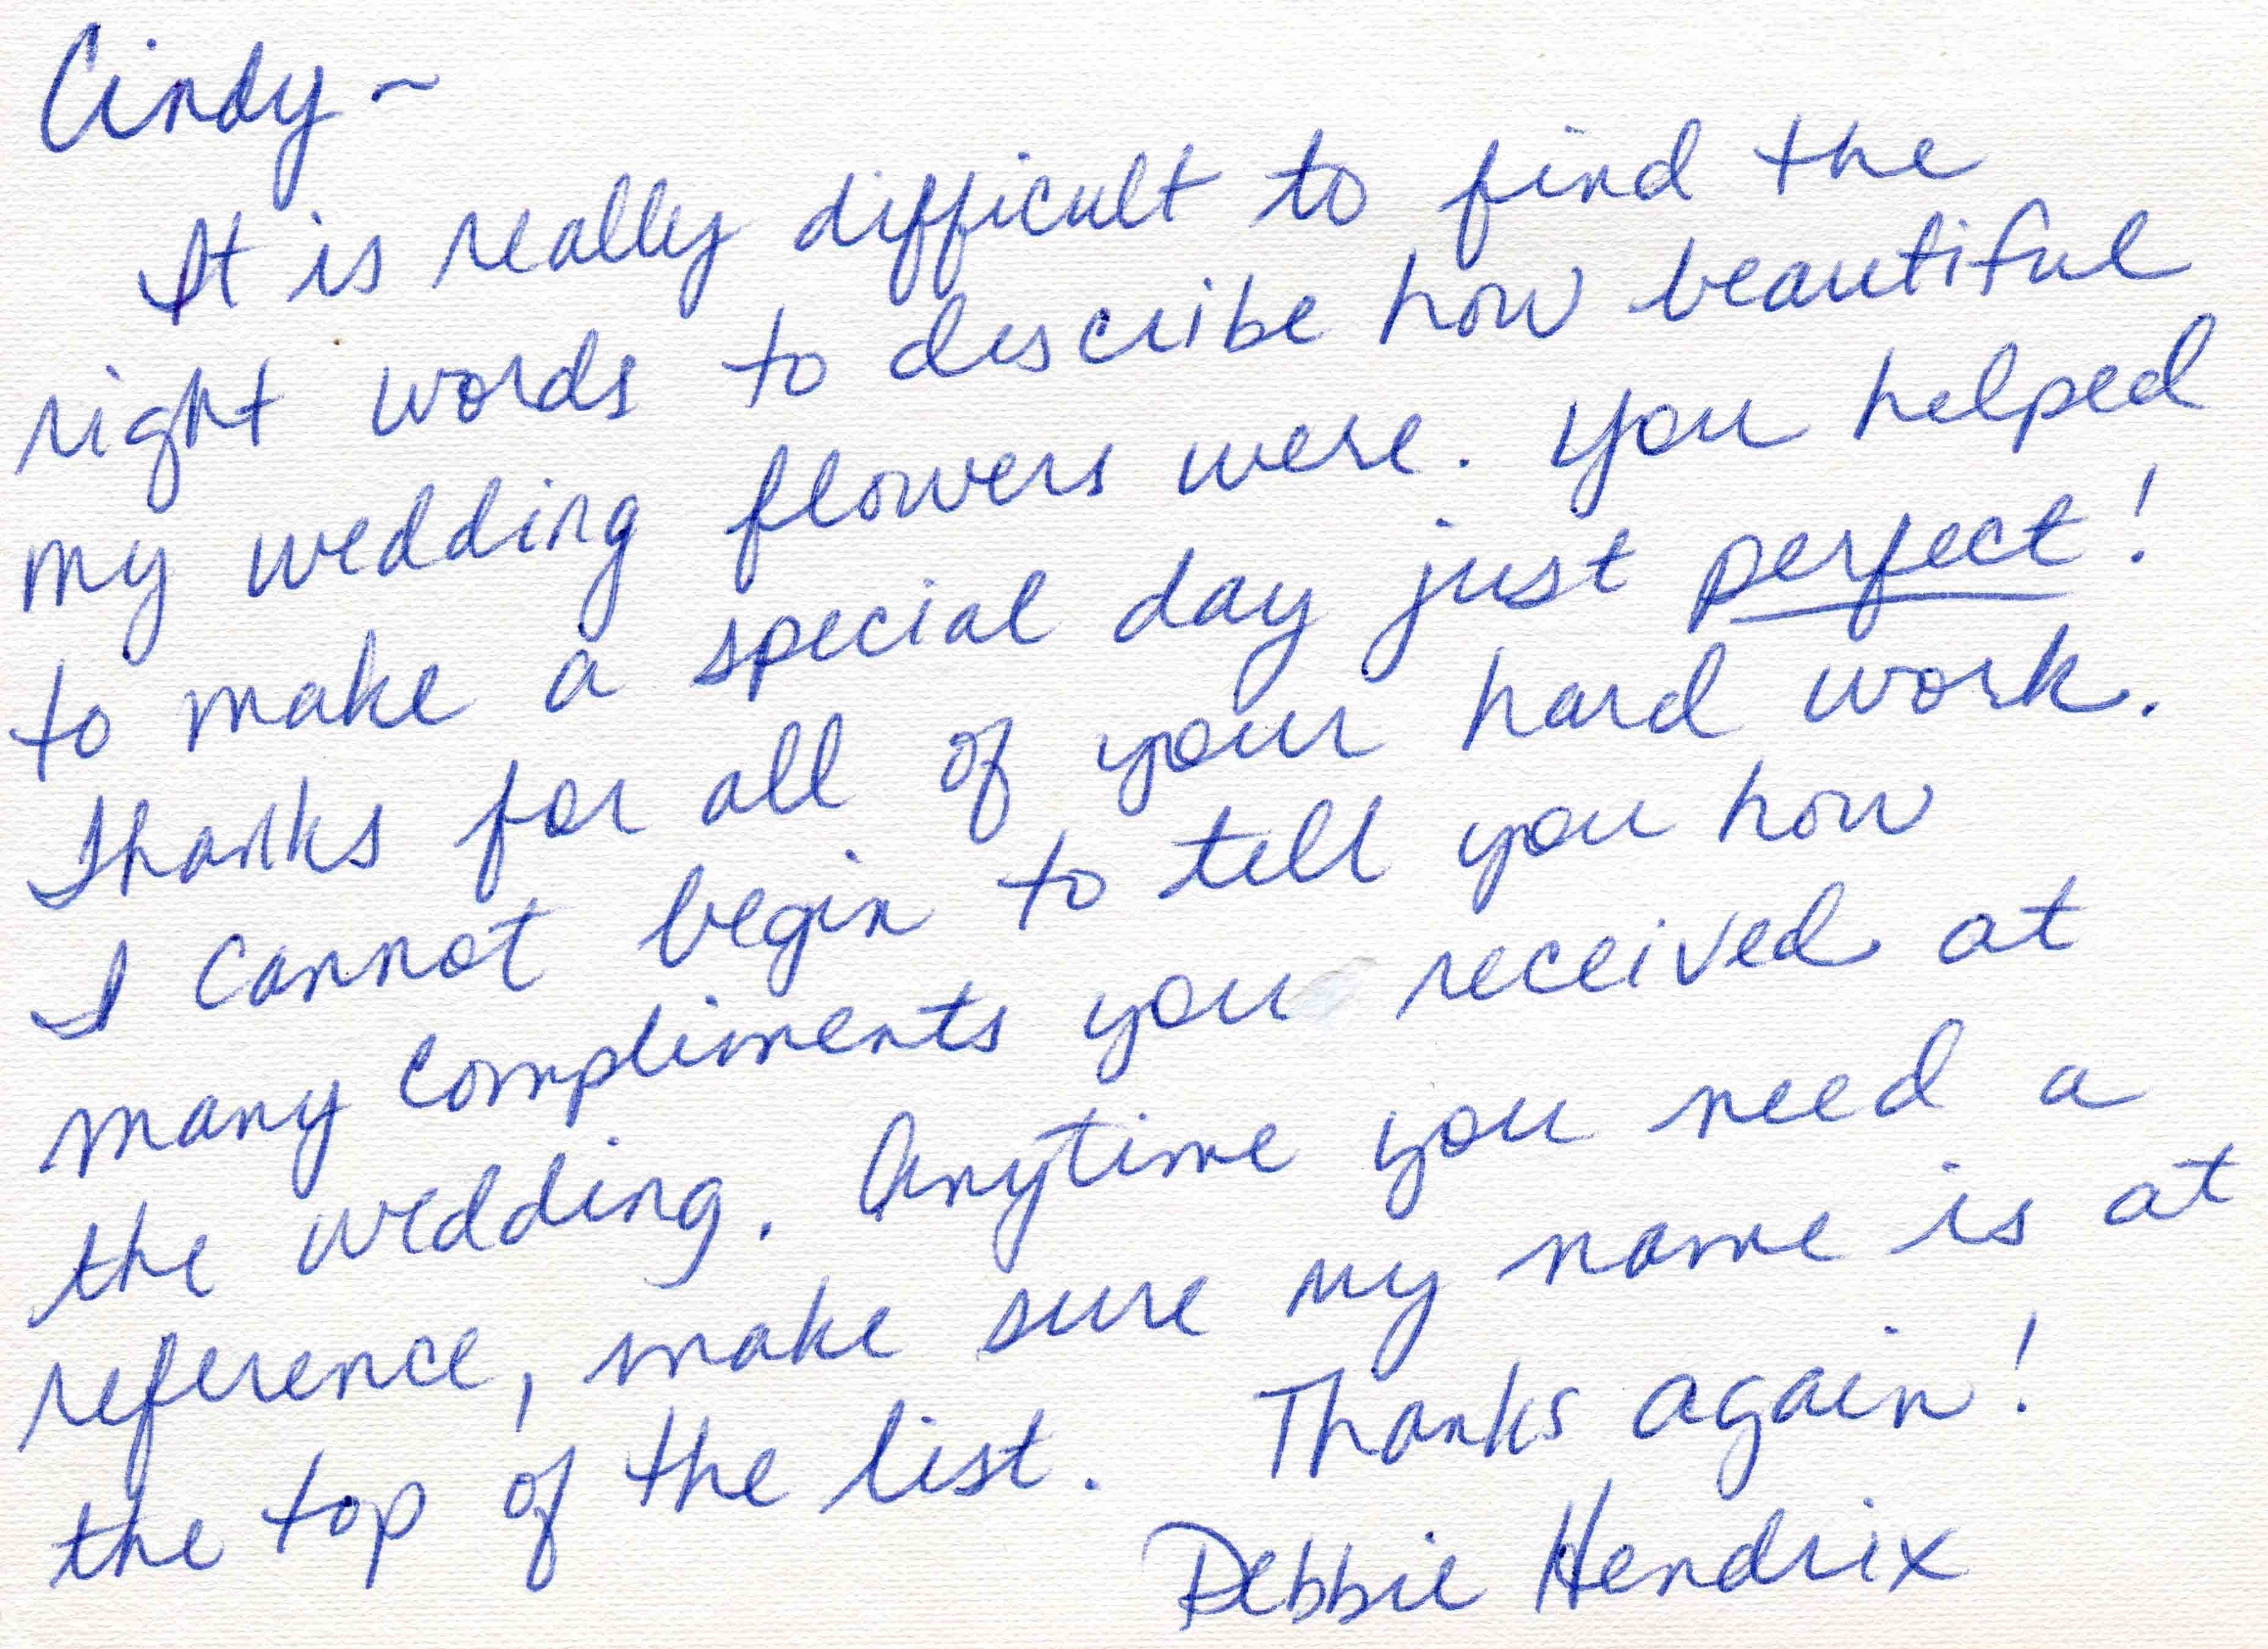 Cindy ~
It is really difficult to find the
right words to describe how beautiful
my wedding flowers were. You helped
to make a special day just perfect!
Thanks for all of your hard work.
I cannot begin to tell you how
many compliments you received at
the wedding. Anytime you need a
reference, make sure my name is at
the top of the list. Thanks again!
Debbie Hendrix